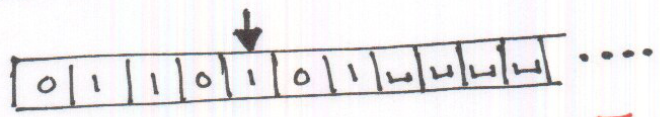 0 1 1 0 1 0 1 ␣ ␣ ␣ ␣ ....